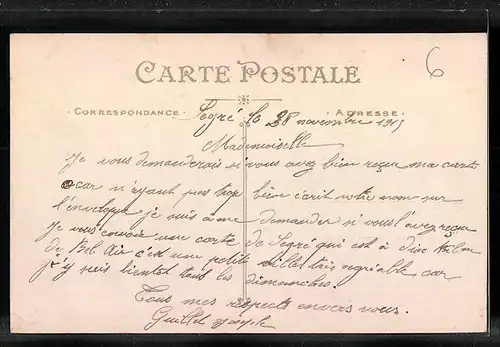 6
CARTE POSTALE
CORRESPONDANCE
ADRESSE
Segré le 28 novembre 1915
Mademoiselle
Je vous demanderais si vous avez bien reçue ma carte
car n'ayant pas trop bien écrit votre nom sur
l'enveloppe je suis à me demander si vous l'avez reçue
Je vous envoie une carte de Segré qui est à dix
de Bel Air c'est une petite ville très agriable car
j'y suis bientot tous les dimanches.
Tous mes respects envers vous.
Guillet Joseph